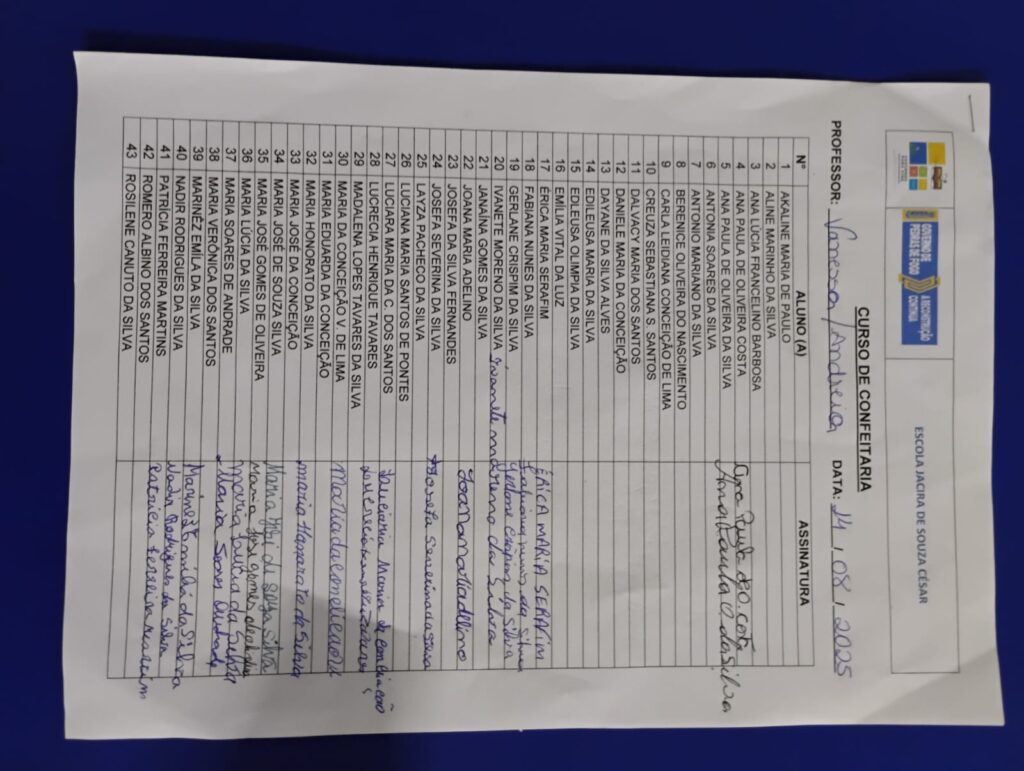 GOVERNO DE PEDRAS DE FOGO
A RECONSTRUÇÃO CONTINUA
ESCOLA JACIRA DE SOUZA CÉSAR
CURSO DE CONFEITARIA
PROFESSOR: Vanessa/Andreia DATA: 14/08/2025
N° ALUNO (A) ASSINATURA
1 AKALINE MARIA DE PAULO
2 ALINE MARINHO DA SILVA
3 ANA LÚCIA FRANCELINO BARBOSA
4 ANA PAULA DE OLIVEIRA COSTA Ana Paula de O. Costa
5 ANA PAULA DE OLIVEIRA DA SILVA Ana Paula O da Silva
6 ANTONIA SOARES DA SILVA
7 ANTONIO MARIANO DA SILVA
8 BERENICE OLIVEIRA DO NASCIMENTO
9 CARLA LEIDIANA CONCEIÇÃO DE LIMA
10 CREUZA SEBASTIANA S. SANTOS
11 DALVACY MARIA DOS SANTOS
12 DANIELE MARIA DA CONCEIÇÃO
13 DAYANE DA SILVA ALVES
14 EDILEUSA MARIA DA SILVA
15 EDLEUSA OLIMPIA DA SILVA
16 EMÍLIA VITAL DA LUZ
17 ÉRICA MARIA SERAFIM ÉRICA MARIA SERAFIM
18 FABIANA NUNES DA SILVA Fabiana nunes da Silva
19 GERLANE CRISPIM DA SILVA Gerlane Crispim da Silva
20 IVANETE MORENO DA SILVA ivanete moreno da Silva
21 JANAÍNA GOMES DA SILVA
22 JOANA MARIA ADELINO Joana Maria Adelino
23 JOSEFA DA SILVA FERNANDES
24 JOSEFA SEVERINA DA SILVA Josefa Severina da Silva
25 LAYZA PACHECO DA SILVA
26 LUCIANA MARIA SANTOS DE PONTES
27 LUCIARA MARIA DA C. DOS SANTOS Luciara Maria da Conceição
28 LUCRECIA HENRIQUE TAVARES
29 MADALENA LOPES TAVARES DA SILVA
30 MARIA DA CONCEIÇÃO V. DE LIMA Maria da
31 MARIA EDUARDA DA CONCEIÇÃO
32 MARIA HONORATO DA SILVA maria Honorato da Silva
33 MARIA JOSÉ DA CONCEIÇÃO
34 MARIA JOSÉ DE SOUZA SILVA Maria José de Soza Silva
35 MARIA JOSÉ GOMES DE OLIVEIRA Maria José gomes
36 MARIA LÚCIA DA SILVA maria Lucia da Silva
37 MARIA SOARES DE ANDRADE Maria Soares Andrade
38 MARIA VERÔNICA DOS SANTOS
39 MARINÊZ EMÍLA DA SILVA Marinêz Emilia da Silva
40 NADIR RODRIGUES DA SILVA Nadir Rodrigues da Silva
41 PATRÍCIA FERREIRA MARTINS Patricia Ferreira
42 ROMERO ALBINO DOS SANTOS
43 ROSILENE CANUTO DA SILVA